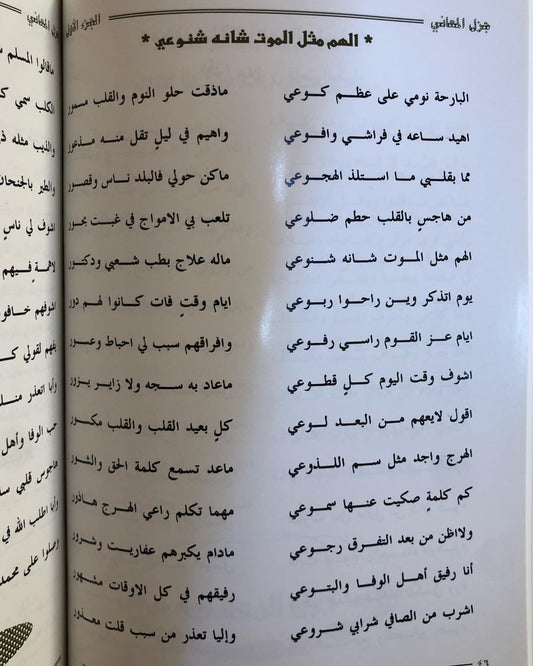 جزل المعاني
الجزء الأول
جزل المعاني
* الهم مثل الموت شانه شنوعي *
البارحة نومي على عظم كوعي ماذقت حلو النوم والقلب مسمور
اهيد ساعه في فراشي وافوعي واهيم في ليلٍ تقل منه مذعور
مما بقلبي ما استلذ الهجوعي ماكن حولي فالبلد ناس وقصور
من هاجسٍ بالقلب حطم ضلوعي تلعب بي الامواج في غبت بحور
الهم مثل الموت شانه شنوعي ماله علاج بطب شعبي ودكتور
يوم اتذكر وين راحوا ربوعي ايام وقتٍ فات كانوا لهم دور
ايام عز القوم راسي رفوعي وافراقهم سبب لي احباط وعسور
اشوف وقت اليوم كلٍ قطوعي ماعاد به سجه ولا زاير يزور
اقول لايعهم من البعد لوعي كلٍ بعيد القلب والقلب مكسور
الهرج واجد مثل سم اللذوعي ماعد تسمع كلمة الحق والشور
كم كلمةٍ صكيت عنها سموعي مهما تكلم راعي الهرج هاذور
ولااظن من بعد التفرق رجوعي مادام يكبرهم عفاريت وشرور
أنا رفيق أهل الوفا والبتوعي رفيقهم في كل الاوقات مشهور
اشرب من الصافي شرابي شروعي واليا تعذر من سبب قلت معذور
٤٦
ماقالوا المسلم
الكلب سمي
والذيب مثله
والطير بالجنحان
اشوف لي ناسٍ
فيهم
اشوفهم
لقولي
وأنا اتعذر
حب الوفا وأهل
هاجوس قلبي
وأنا اطلب الله في
وصلوا على محمد